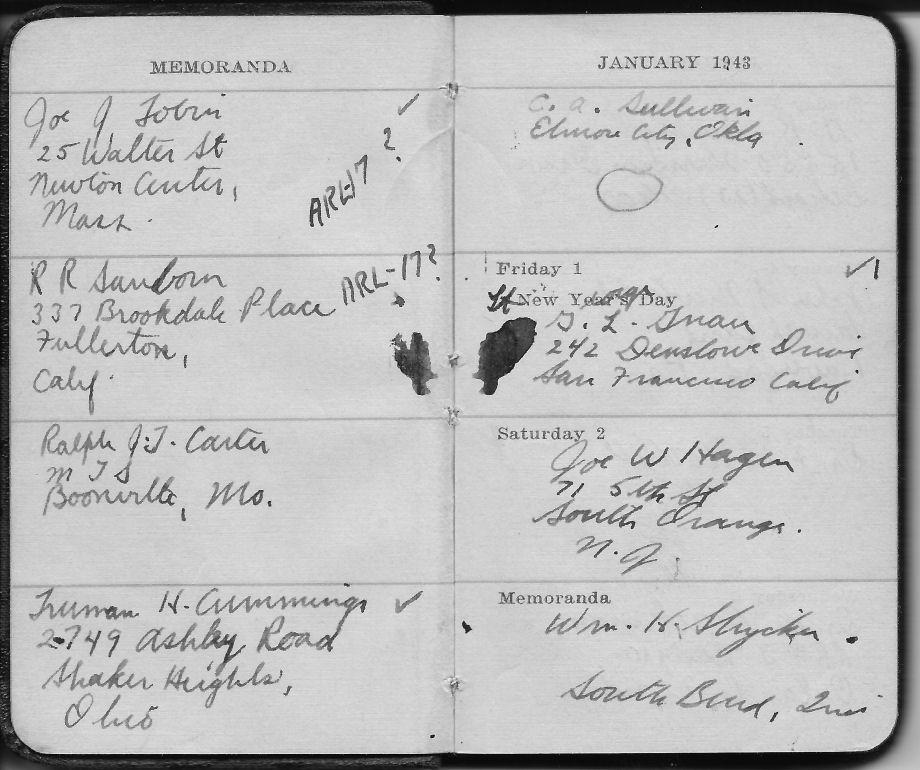 MEMORANDA
Joe J Tobin ✓
25 Walter St
Newton Center,
Mass.
ARL-17 ?
R R Sanborn
337 Brookdale Place
Fullerton,
Calif.
ARL-17?
Ralph J.T. Carter
M T S
Boonville, Mo.
Truman H. Cummings ✓
2749 Ashby Road
Shaker Heights,
Ohio
JANUARY 1943
C. A. Sullivan
Elmore City, Okla
Friday 1 ✓1
New Year's Day
242 Denslowe Drive
San Francisco Calif
Saturday 2
Joe W Hagen
71 5th St
South Orange.
N. J.
Memoranda
Wm. H.
South Bend, Ind